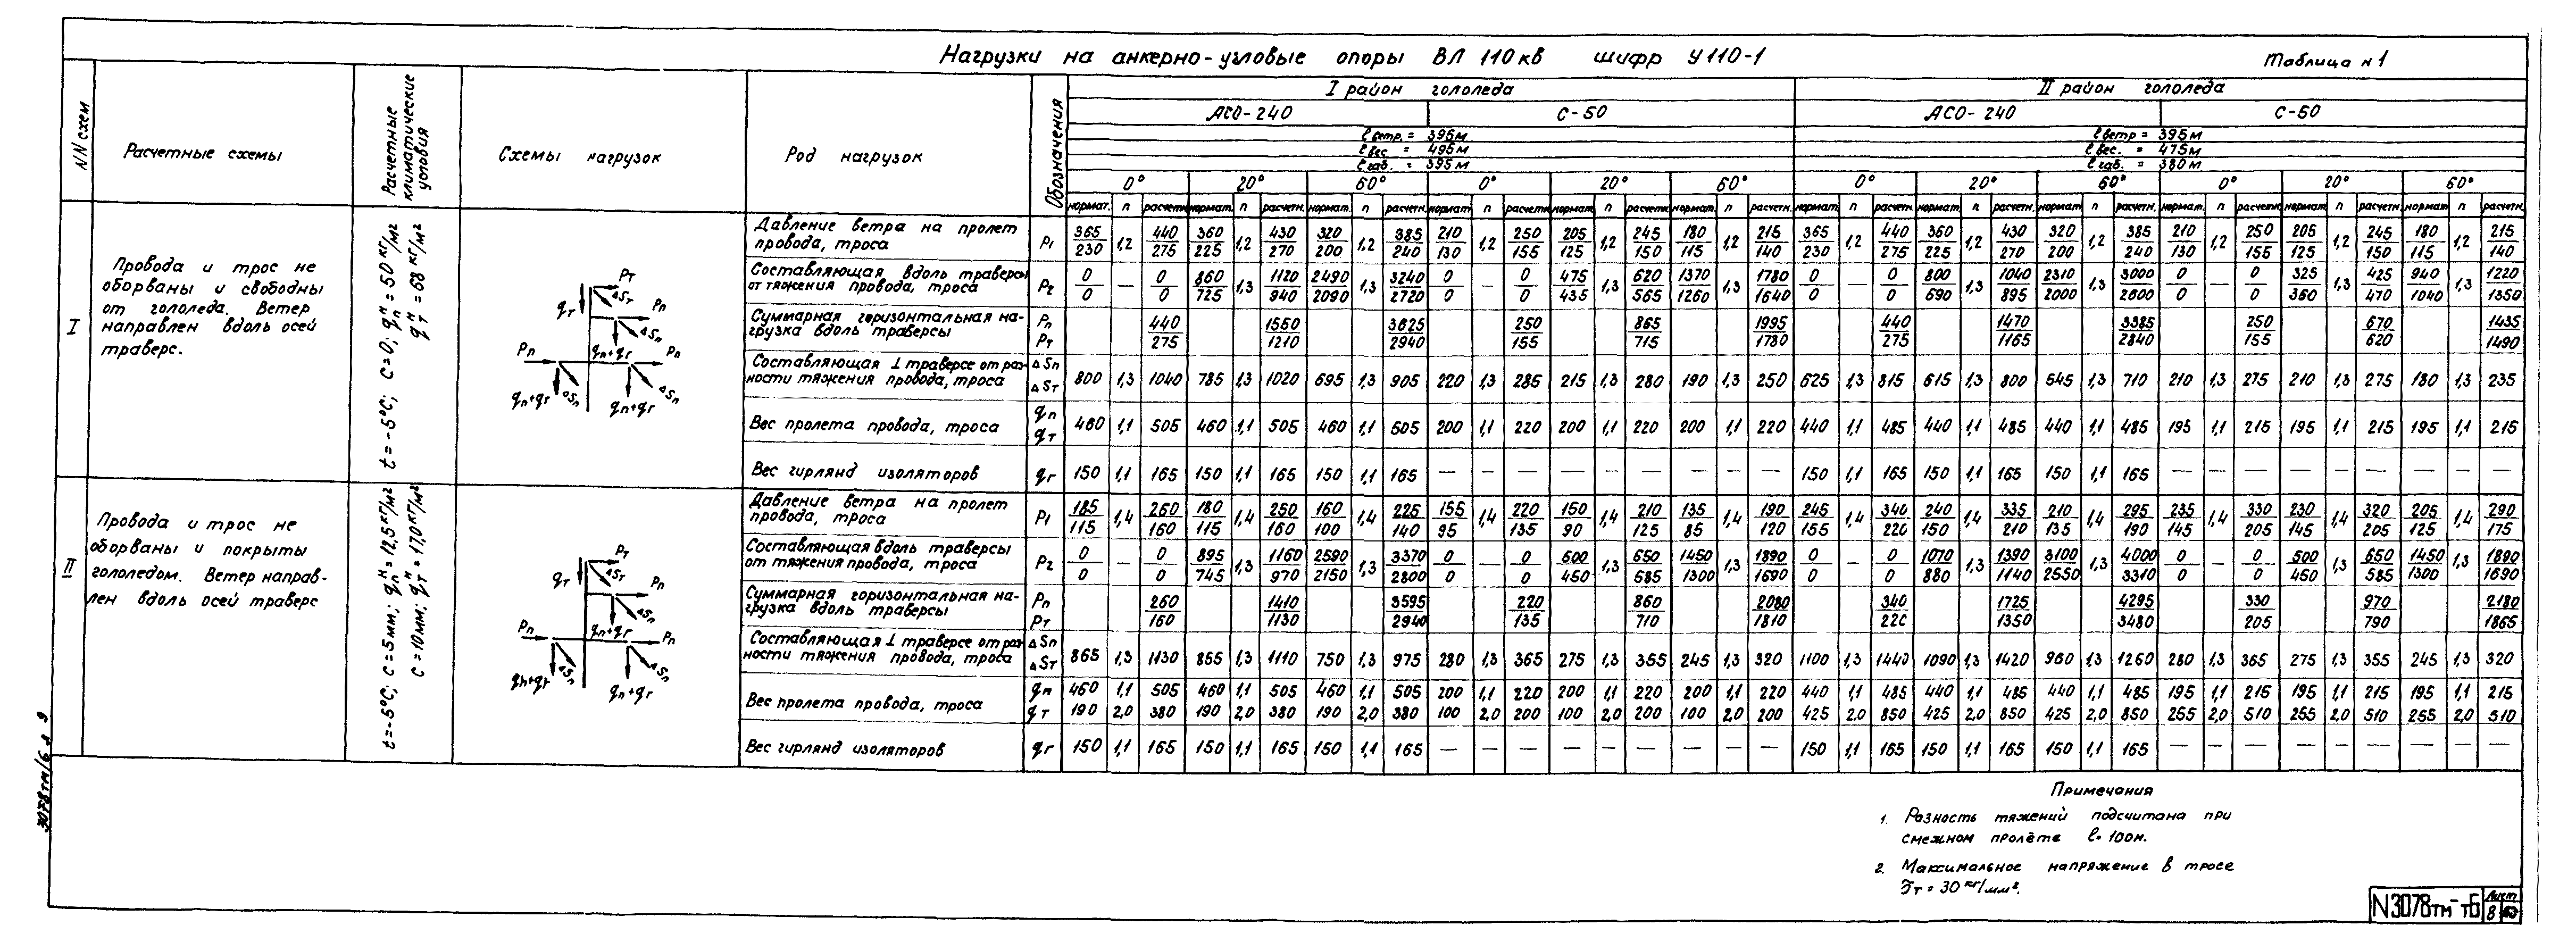 Нагрузки на анкерно-угловые опоры ВЛ 110кв шифр У110-1
Таблица н1
NN схем
Расчетные схемы
Расчетные климатические условия
Схемы нагрузок
Род нагрузок
Обозначения
I район гололеда
II район гололеда
АСО-240 С-50 АСО-240 С-50
ℓ ветр. = 395м ℓ ветр = 395м
ℓ вес = 495м ℓ вес. = 475м
ℓ габ. = 395м ℓ габ. = 380м
0° 20° 60° 0° 20° 60° 0° 20° 60° 0° 20° 60°
нормат. n расчетн. нормат. n расчетн. нормат. n расчетн. нормат n расчетн нормат. n расчетн. нормат. n расчетн. нормат n расчетн. нормат. n расчетн. нормат n расчетн. нормат. n расчетн. нормат. n расчетн. нормат n расчетн
I
Провода и трос не
оборваны и свободны
от гололеда. Ветер
направлен вдоль осей
траверс.
t = -5°С; С=0; qпн = 50 кг/м²
qтн = 68 кг/м²
Pт
qт
ΔSт
Pп
ΔSп
Pп qп+qг Pп
qп+qг ΔSп qп+qг ΔSп
Давление ветра на пролет
провода, троса
P1
365 440 360 430 320 385 210 250 205 245 180 215 365 440 360 430 320 385 210 250 205 245 180 215
1,2 1,2 1,2 1,2 1,2 1,2 1,2 1,2 1,2 1,2 1,2 1,2
230 275 225 270 200 240 130 155 125 150 115 140 230 275 225 270 200 240 130 155 125 150 115 140
Составляющая вдоль траверсы
от тяжения провода, троса
P2
0 0 860 1120 2490 3240 0 0 475 620 1370 1780 0 0 800 1040 2310 3000 0 0 325 425 940 1220
— 1,3 1,3 — 1,3 1,3 — 1,3 1,3 — 1,3 1,3
0 0 725 940 2090 2720 0 0 435 565 1260 1640 0 0 690 895 2000 2600 0 0 360 470 1040 1350
Суммарная горизонтальная на-
грузка вдоль траверсы
Pп
Pт
440 1550 3625 250 865 1995 440 1470 3385 250 670 1435
275 1210 2940 155 715 1780 275 1165 2840 155 620 1490
Составляющая ⊥ траверсе от раз-
ности тяжения провода, троса
ΔSп
ΔSт
800 1,3 1040 785 1,3 1020 695 1,3 905 220 1,3 285 215 1,3 280 190 1,3 250 625 1,3 815 615 1,3 800 545 1,3 710 210 1,3 275 210 1,3 275 180 1,3 235
Вес пролета провода, троса
qп
qт
460 1,1 505 460 1,1 505 460 1,1 505 200 1,1 220 200 1,1 220 200 1,1 220 440 1,1 485 440 1,1 485 440 1,1 485 195 1,1 215 195 1,1 215 195 1,1 215
Вес гирлянд изоляторов
qг
150 1,1 165 150 1,1 165 150 1,1 165 — — — — — — — — — 150 1,1 165 150 1,1 165 150 1,1 165 — — — — — — — — —
II
Провода и трос не
оборваны и покрыты
гололедом. Ветер направ-
лен вдоль осей траверс
t = -5°С; С = 5мм; qпн = 12,5 кг/м²
С = 10мм; qтн = 17,0 кг/м²
Pт
qт
ΔSт
Pп
ΔSп
Pп qп+qг Pп
qп+qг ΔSп qп+qг ΔSп
Давление ветра на пролет
провода, троса
P1
185 260 180 250 160 225 155 220 150 210 135 190 245 340 240 335 210 295 235 330 230 320 205 290
1,4 1,4 1,4 1,4 1,4 1,4 1,4 1,4 1,4 1,4 1,4 1,4
115 160 115 160 100 140 95 135 90 125 85 120 155 220 150 210 135 190 145 205 145 205 125 175
Составляющая вдоль траверсы
от тяжения провода, троса
P2
0 0 895 1160 2590 3370 0 0 500 650 1450 1890 0 0 1070 1390 3100 4000 0 0 500 650 1450 1890
— 1,3 1,3 — 1,3 1,3 — 1,3 1,3 — 1,3 1,3
0 0 745 970 2150 2800 0 0 450 585 1300 1690 0 0 880 1140 2550 3310 0 0 450 585 1300 1690
Суммарная горизонтальная на-
грузка вдоль траверсы
Pп
Pт
260 1410 3595 220 860 2080 340 1725 4295 330 970 2180
160 1130 2940 135 710 1810 220 1350 3480 205 790 1865
Составляющая ⊥ траверсе от раз-
ности тяжения провода, троса
ΔSп
ΔSт
865 1,3 1130 855 1,3 1110 750 1,3 975 280 1,3 365 275 1,3 355 245 1,3 320 1100 1,3 1440 1090 1,3 1420 960 1,3 1260 280 1,3 365 275 1,3 355 245 1,3 320
Вес пролета провода, троса
qп
qт
460 1,1 505 460 1,1 505 460 1,1 505 200 1,1 220 200 1,1 220 200 1,1 220 440 1,1 485 440 1,1 485 440 1,1 485 195 1,1 215 195 1,1 215 195 1,1 215
190 2,0 380 190 2,0 380 190 2,0 380 100 2,0 200 100 2,0 200 100 2,0 200 425 2,0 850 425 2,0 850 425 2,0 850 255 2,0 510 255 2,0 510 255 2,0 510
Вес гирлянд изоляторов
qг
150 1,1 165 150 1,1 165 150 1,1 165 — — — — — — — — — 150 1,1 165 150 1,1 165 150 1,1 165 — — — — — — — — —
Примечания
1. Разность тяжений подсчитана при
смежном пролёте ℓ= 100м.
2. Максимальное напряжение в тросе
σт = 30 кг/мм².
3078тм/6 л 9
N3078тм-т6
лист
8